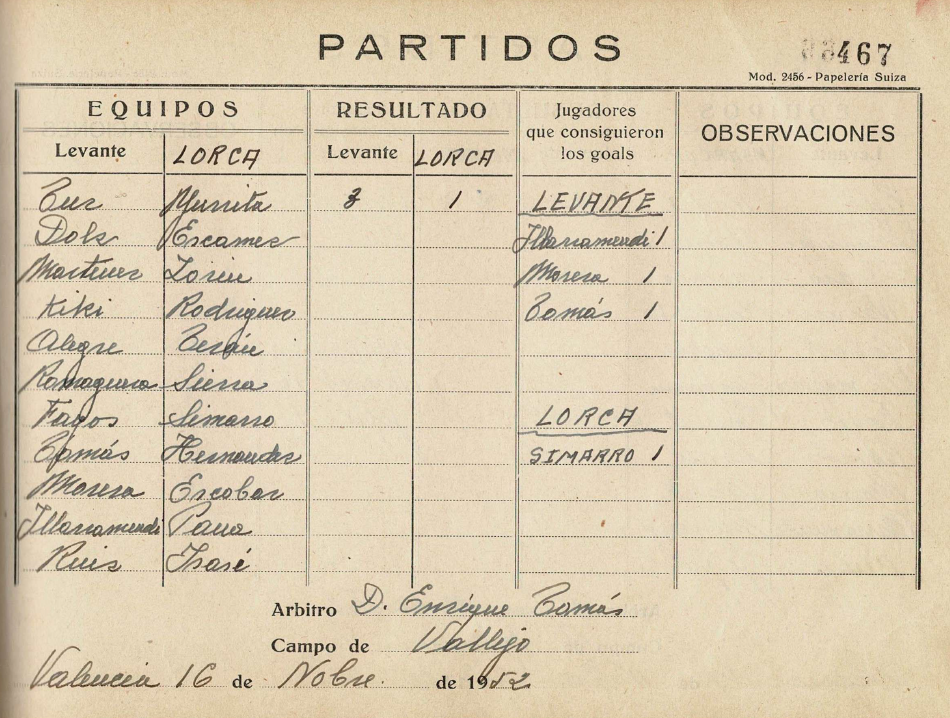 PARTIDOS
467
Mod. 2456 - Papelería Suiza
EQUIPOS RESULTADO Jugadores que consiguieron los goals OBSERVACIONES
Levante LORCA Levante LORCA
Cuz Murrita 3 1 LEVANTE
Dols Escamez Illarramendi 1
Martinez Morera 1
Kiki Rodriguez Tomás 1
Alegre Terán
Romaguera Sierra
Fagos Simarro LORCA
Tomás Hernandez SIMARRO 1
Morera Escobar
Illarramendi
Ruiz
Arbitro D. Enrique Tomás
Campo de Vallejo
Valencia 16 de Nobre. de 1952